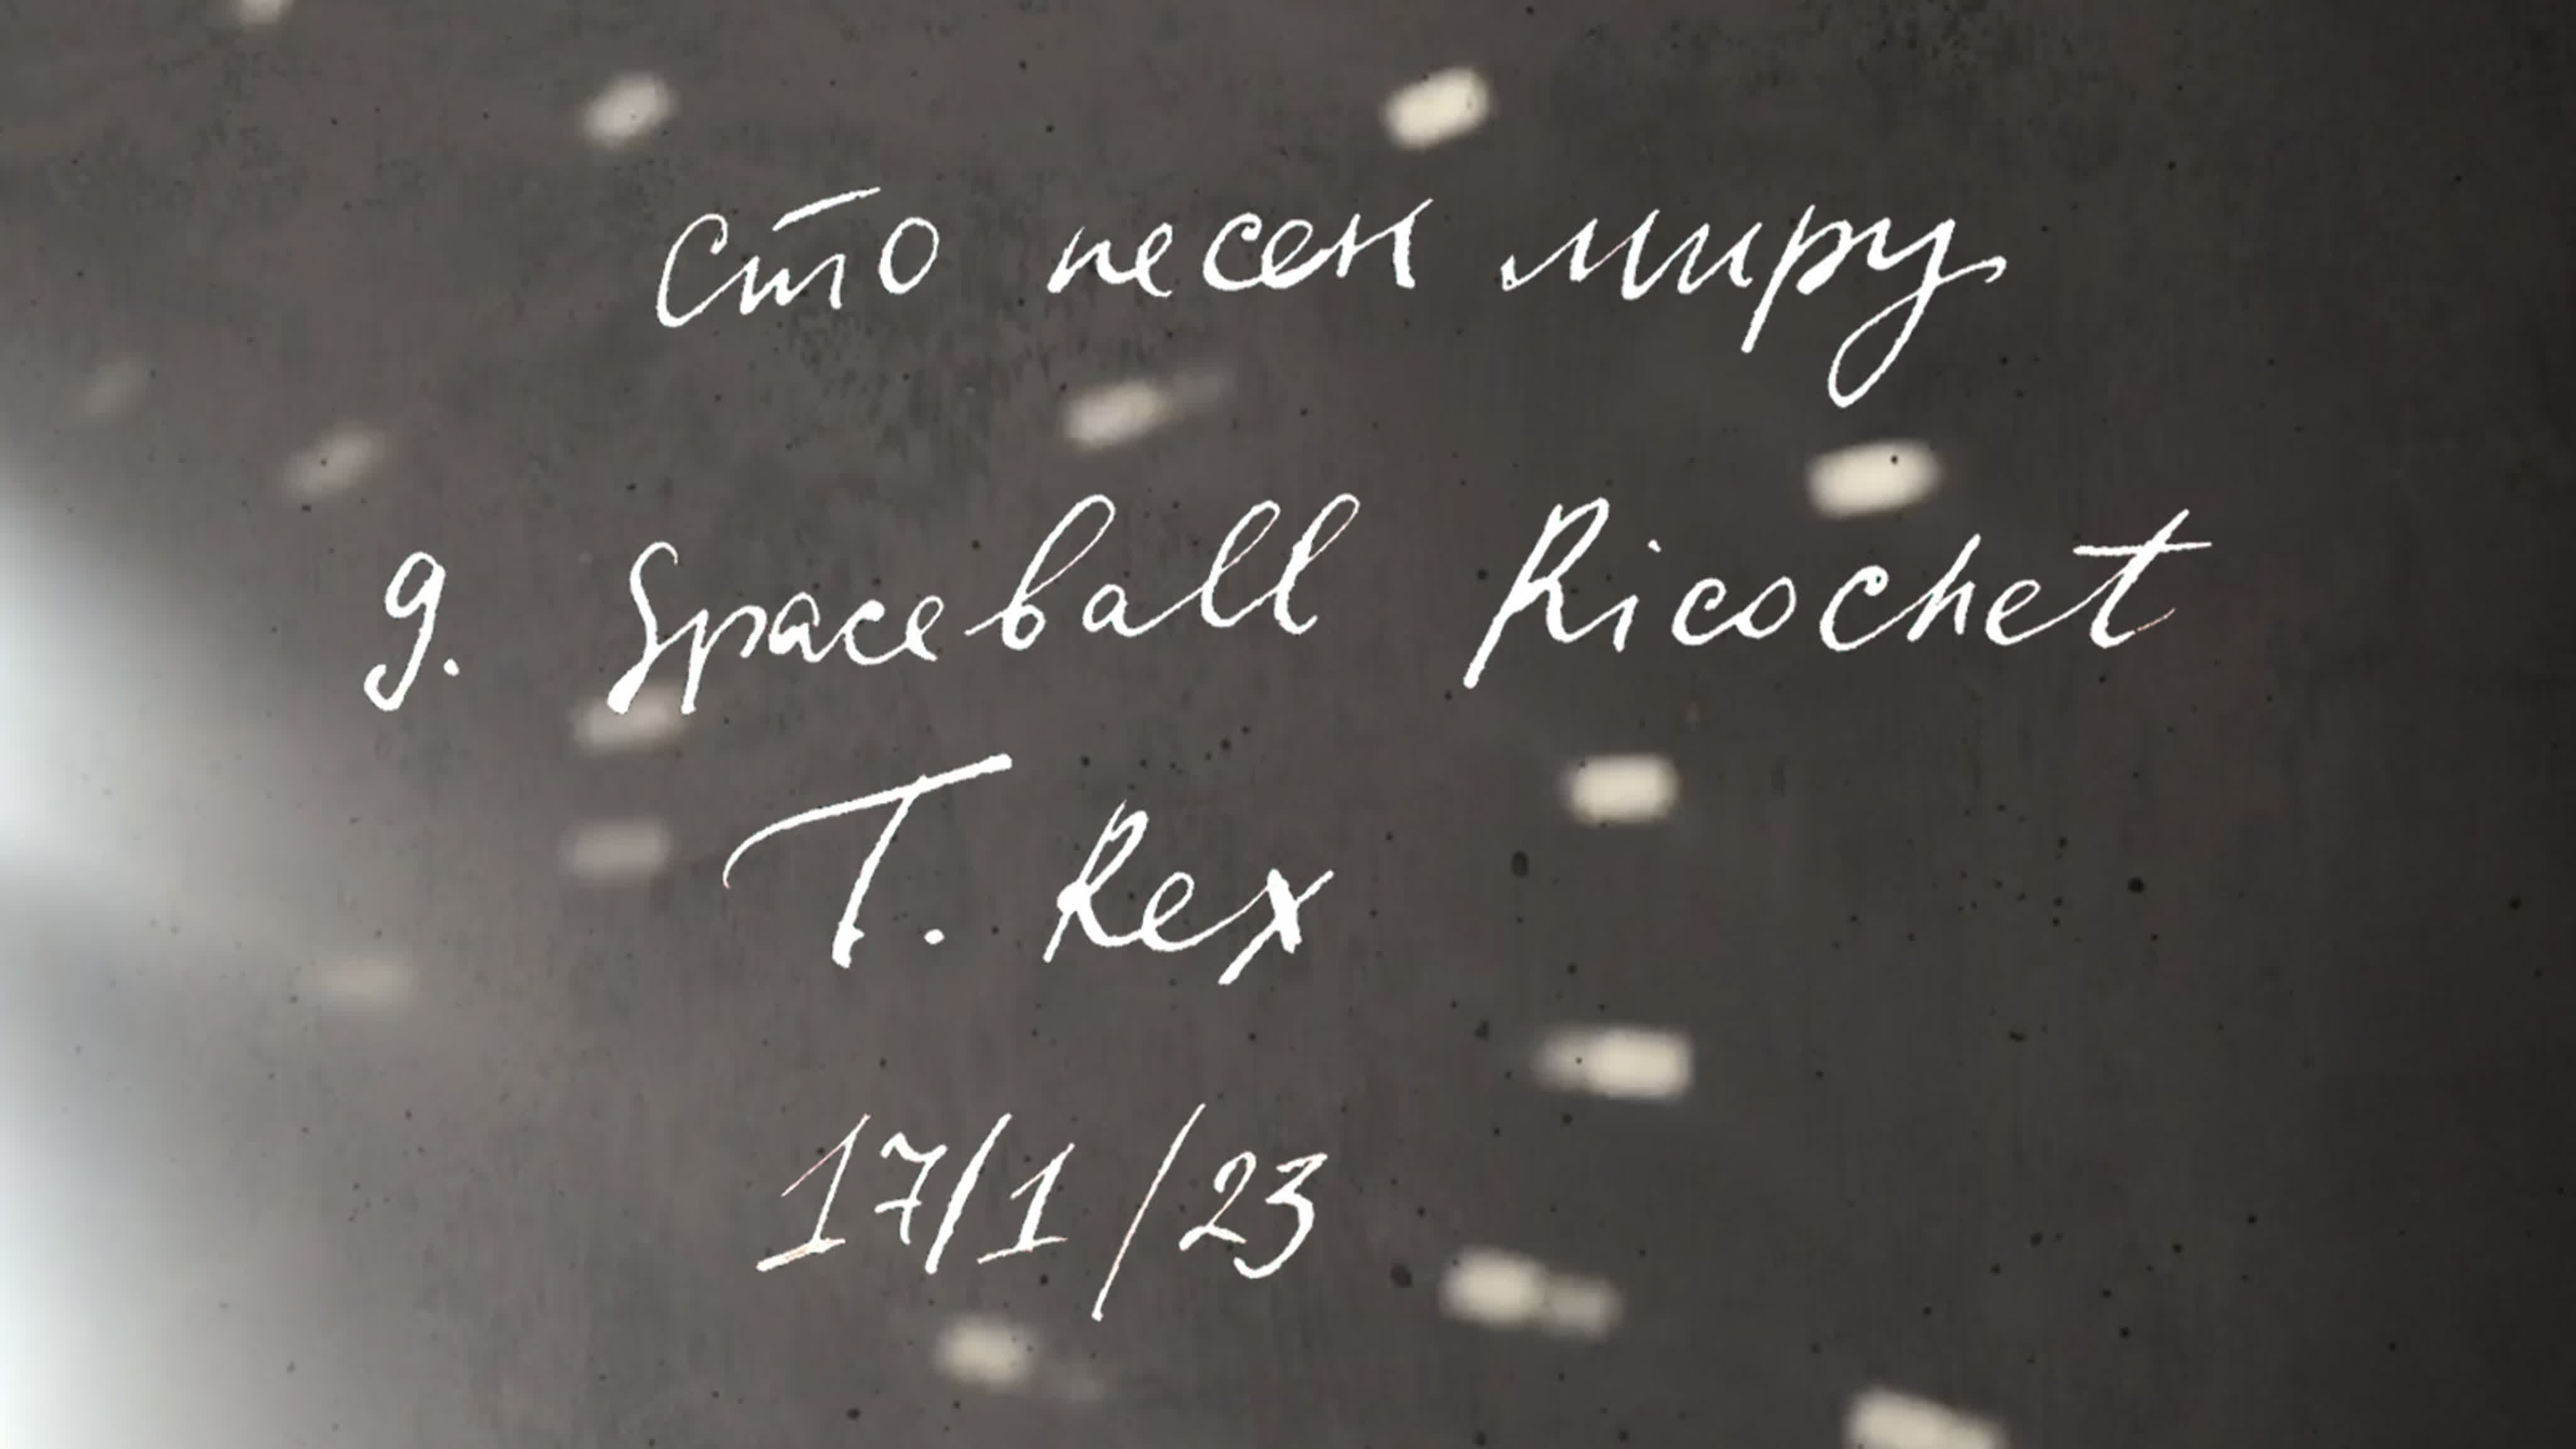 Сто песен миру
9. Spaceball Ricochet
T. Rex
17/1/23